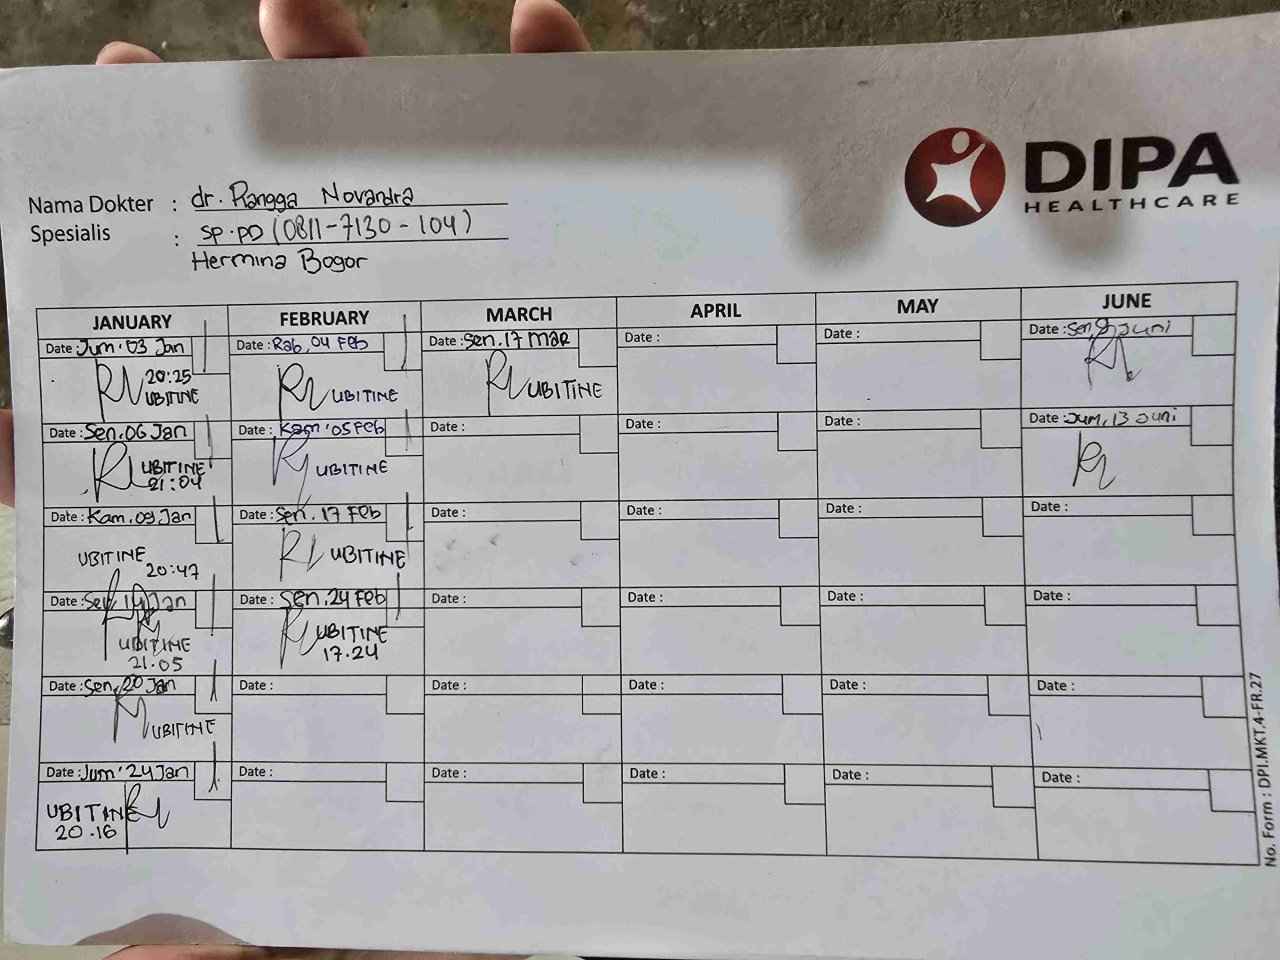 DIPA
HEALTHCARE
Nama Dokter : dr. Rangga Novandra
Spesialis : SP.PD (0811-7130-104)
Hermina Bogor
JANUARY FEBRUARY MARCH APRIL MAY JUNE
Date : Jum'03 Jan Date : Rab, 04 Feb Date : Sen.17 Mar Date : Date : Date : Sen, Juni
20:25
UBITINE UBITINE UBITINE
Date : Sen.06 Jan Date : Kam'05 Feb Date : Date : Date : Date : Jum, 13 Juni
UBITINE UBITINE
21:04
Date : Kam.09 Jan Date : Sen.17 Feb Date : Date : Date : Date :
UBITINE UBITINE
20:47
Date : Jan Date : Sen.24 Feb Date : Date : Date : Date :
UBITINE UBITINE
21.05 17.24
Date : Sen, 20 Jan Date : Date : Date : Date : Date :
UBITINE
Date : Jum'24 Jan Date : Date : Date : Date : Date :
UBITINE
20.16
No. Form : DPI.MKT.4-FR.27